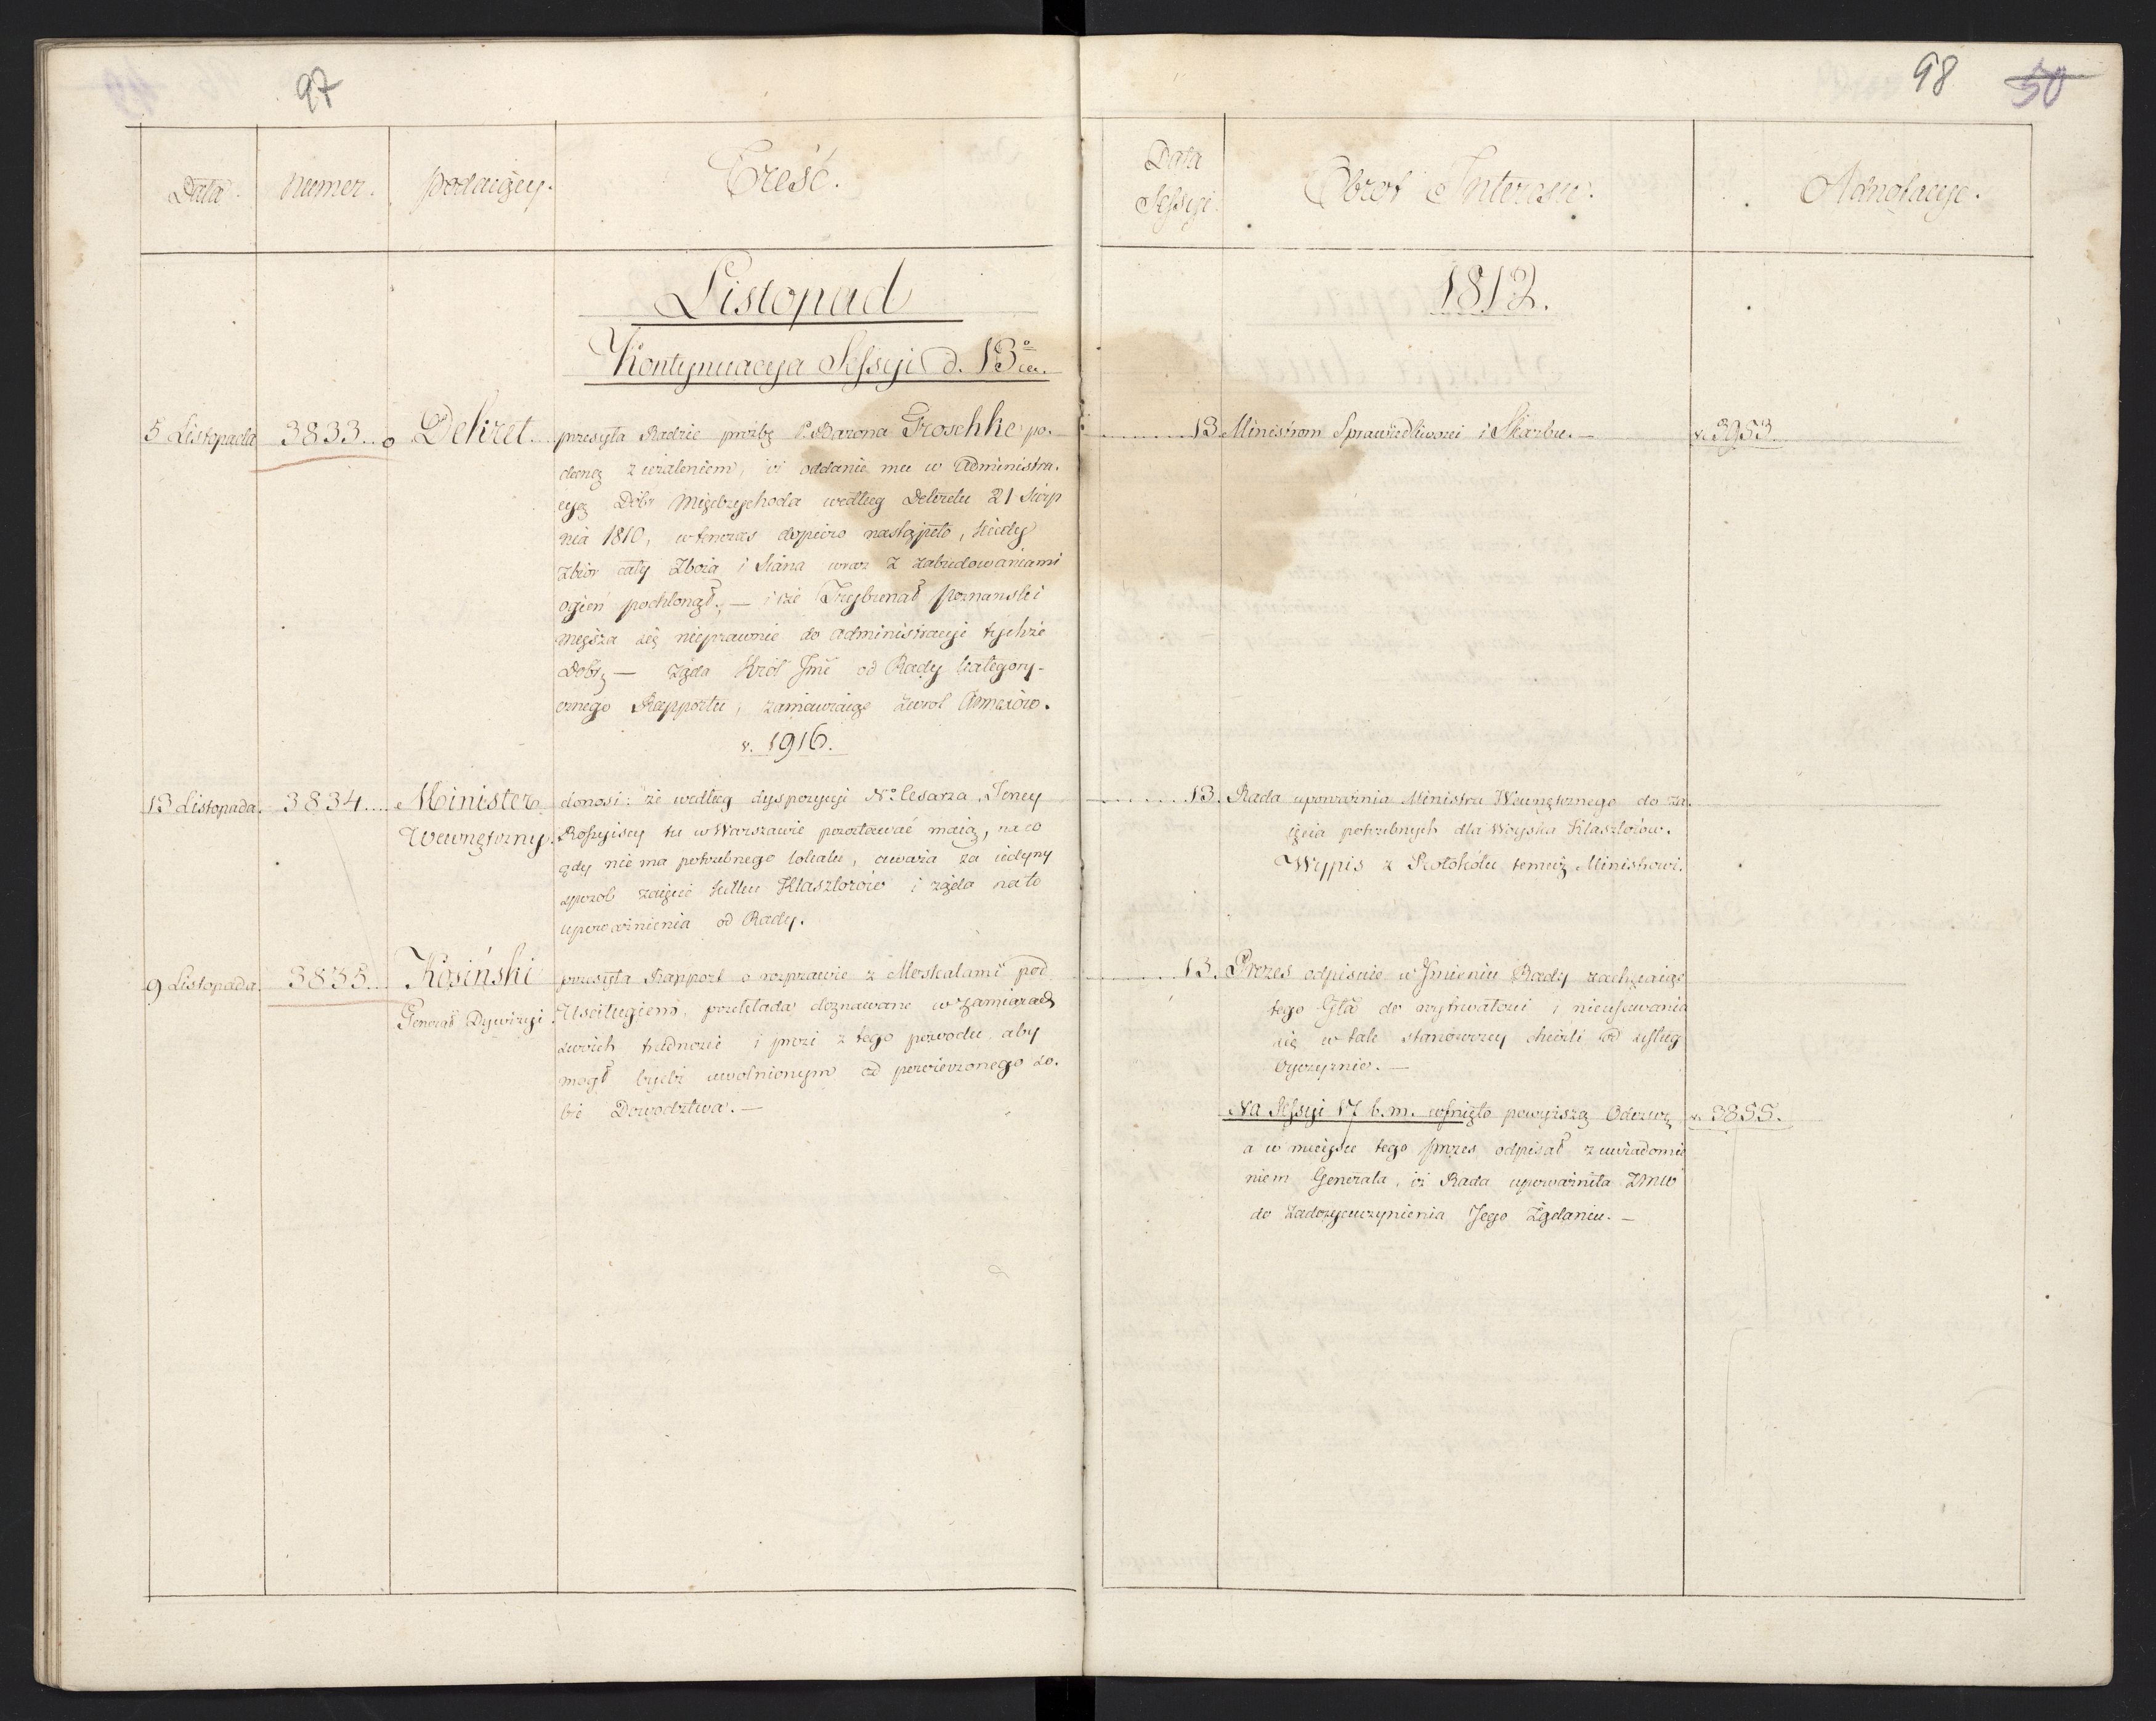 97
Data.
Numer.
Podaiący.
Treść.
Listopad
Kontynuacya Sessyi d. 13°
5 Listopada
3833...
Dekret
przesyła Radzie prośbę P. Barona Groschke po-
daną z użaleniem, iż oddanie mu w Administra-
cyą Dóbr Międzychoda według Dekretu 21 Sierp
nia 1810, wtenczas dopiero nastąpiło, kiedy
zbiór cały Zboża i Siana wraz z zabudowaniami
ogień pochłonął; — i że Trybunał Poznanski
miesza się nieprawnie do administracyi tychże
Dóbr, — żąda Król Jmć od Rady kategory-
cznego Rapportu, zamawiaiąc zwrot Annexów.
v. 1916.
13 Listopada.
3834....
Minister
Wewnętrzny.
donosi: że według dyspozycyi N° Cesarza, Jeńcy
Rossyiscy tu w Warszawie pozostawać maią, na co
gdy nie ma potrzebnego lokalu, uważa za iedyny
sposób zaięcie kilku Klasztorów i żąda na to
upoważnienia od Rady.
9 Listopada.
3835...
Kosiński
Generał Dywizyi
przesyła Rapport o rozprawie z Moskalami pod
Uściługiem, przekłada doznawane w zamiarach
swoich trudności i prosi z tego powodu, aby
mógł bydź uwolnionym od powierzonego so-
bie Dowodztwa. —
98
50
Data
Sessyi.
Obrot Interesu.
Adnotacye.
1812.
13 Ministrom Sprawiedliwości i Skarbu. —
v. 3953.
13. Rada upoważnia Ministra Wewnętrznego do za-
ięcia potrzebnych dla Woyska Klasztorów.
Wypis z Protokółu temuż Ministrowi.
13. Prezes odpisuie w Imieniu Rady zachęcaiąc
tego Gła do wytrwałości i nieusuwania
się w tak stanowczey chwili od usług
Oyczyznie. —
Na Sessyi 17 b. m. cofnięto powyższą Odezwę
v. 3855.
a w mieysce tego Prezes odpisał z uwiadomie
niem Generała, iż Rada upoważniła ZMW
do zadosyćuczynienia Jego Żądaniu. —